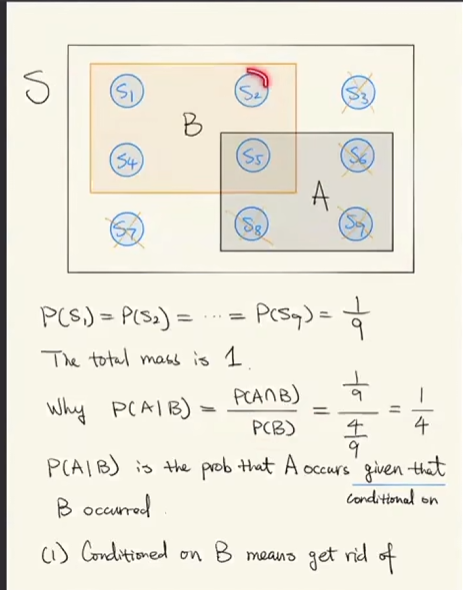 S
S₁ S₂ S₃
B
S₄ S₅ S₆
A
S₇ S₈ S₉
P(S₁) = P(S₂) = ⋯ = P(S₉) = 1/9
The total mass is 1.
Why P(A|B) = P(A∩B)/P(B) = (1/9)/(4/9) = 1/4
P(A|B) is the prob that A occurs given that
conditional on
B occurred.
(1) Conditioned on B means get rid of